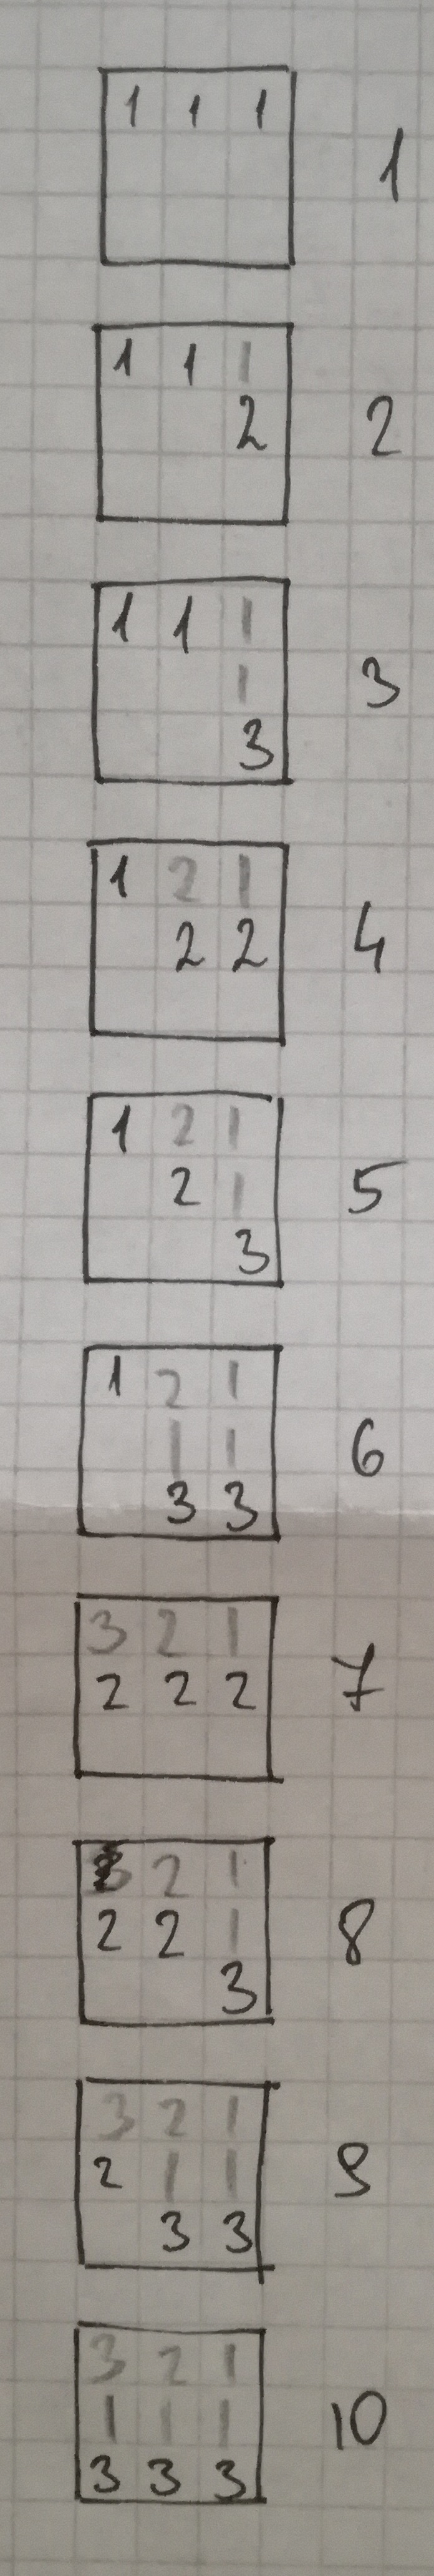 1 1 1
1
1 1 1
2
2
1 1 1
1
3
3
1 2 1
2 2
4
1 2 1
2 1
5
3
1 2 1
1 1
6
3 3
3 2 1
2 2 2
7
2 1
2 2 1
8
3
3 2 1
2 1 1
9
3 3
3 2 1
1 1 1
10
3 3 3